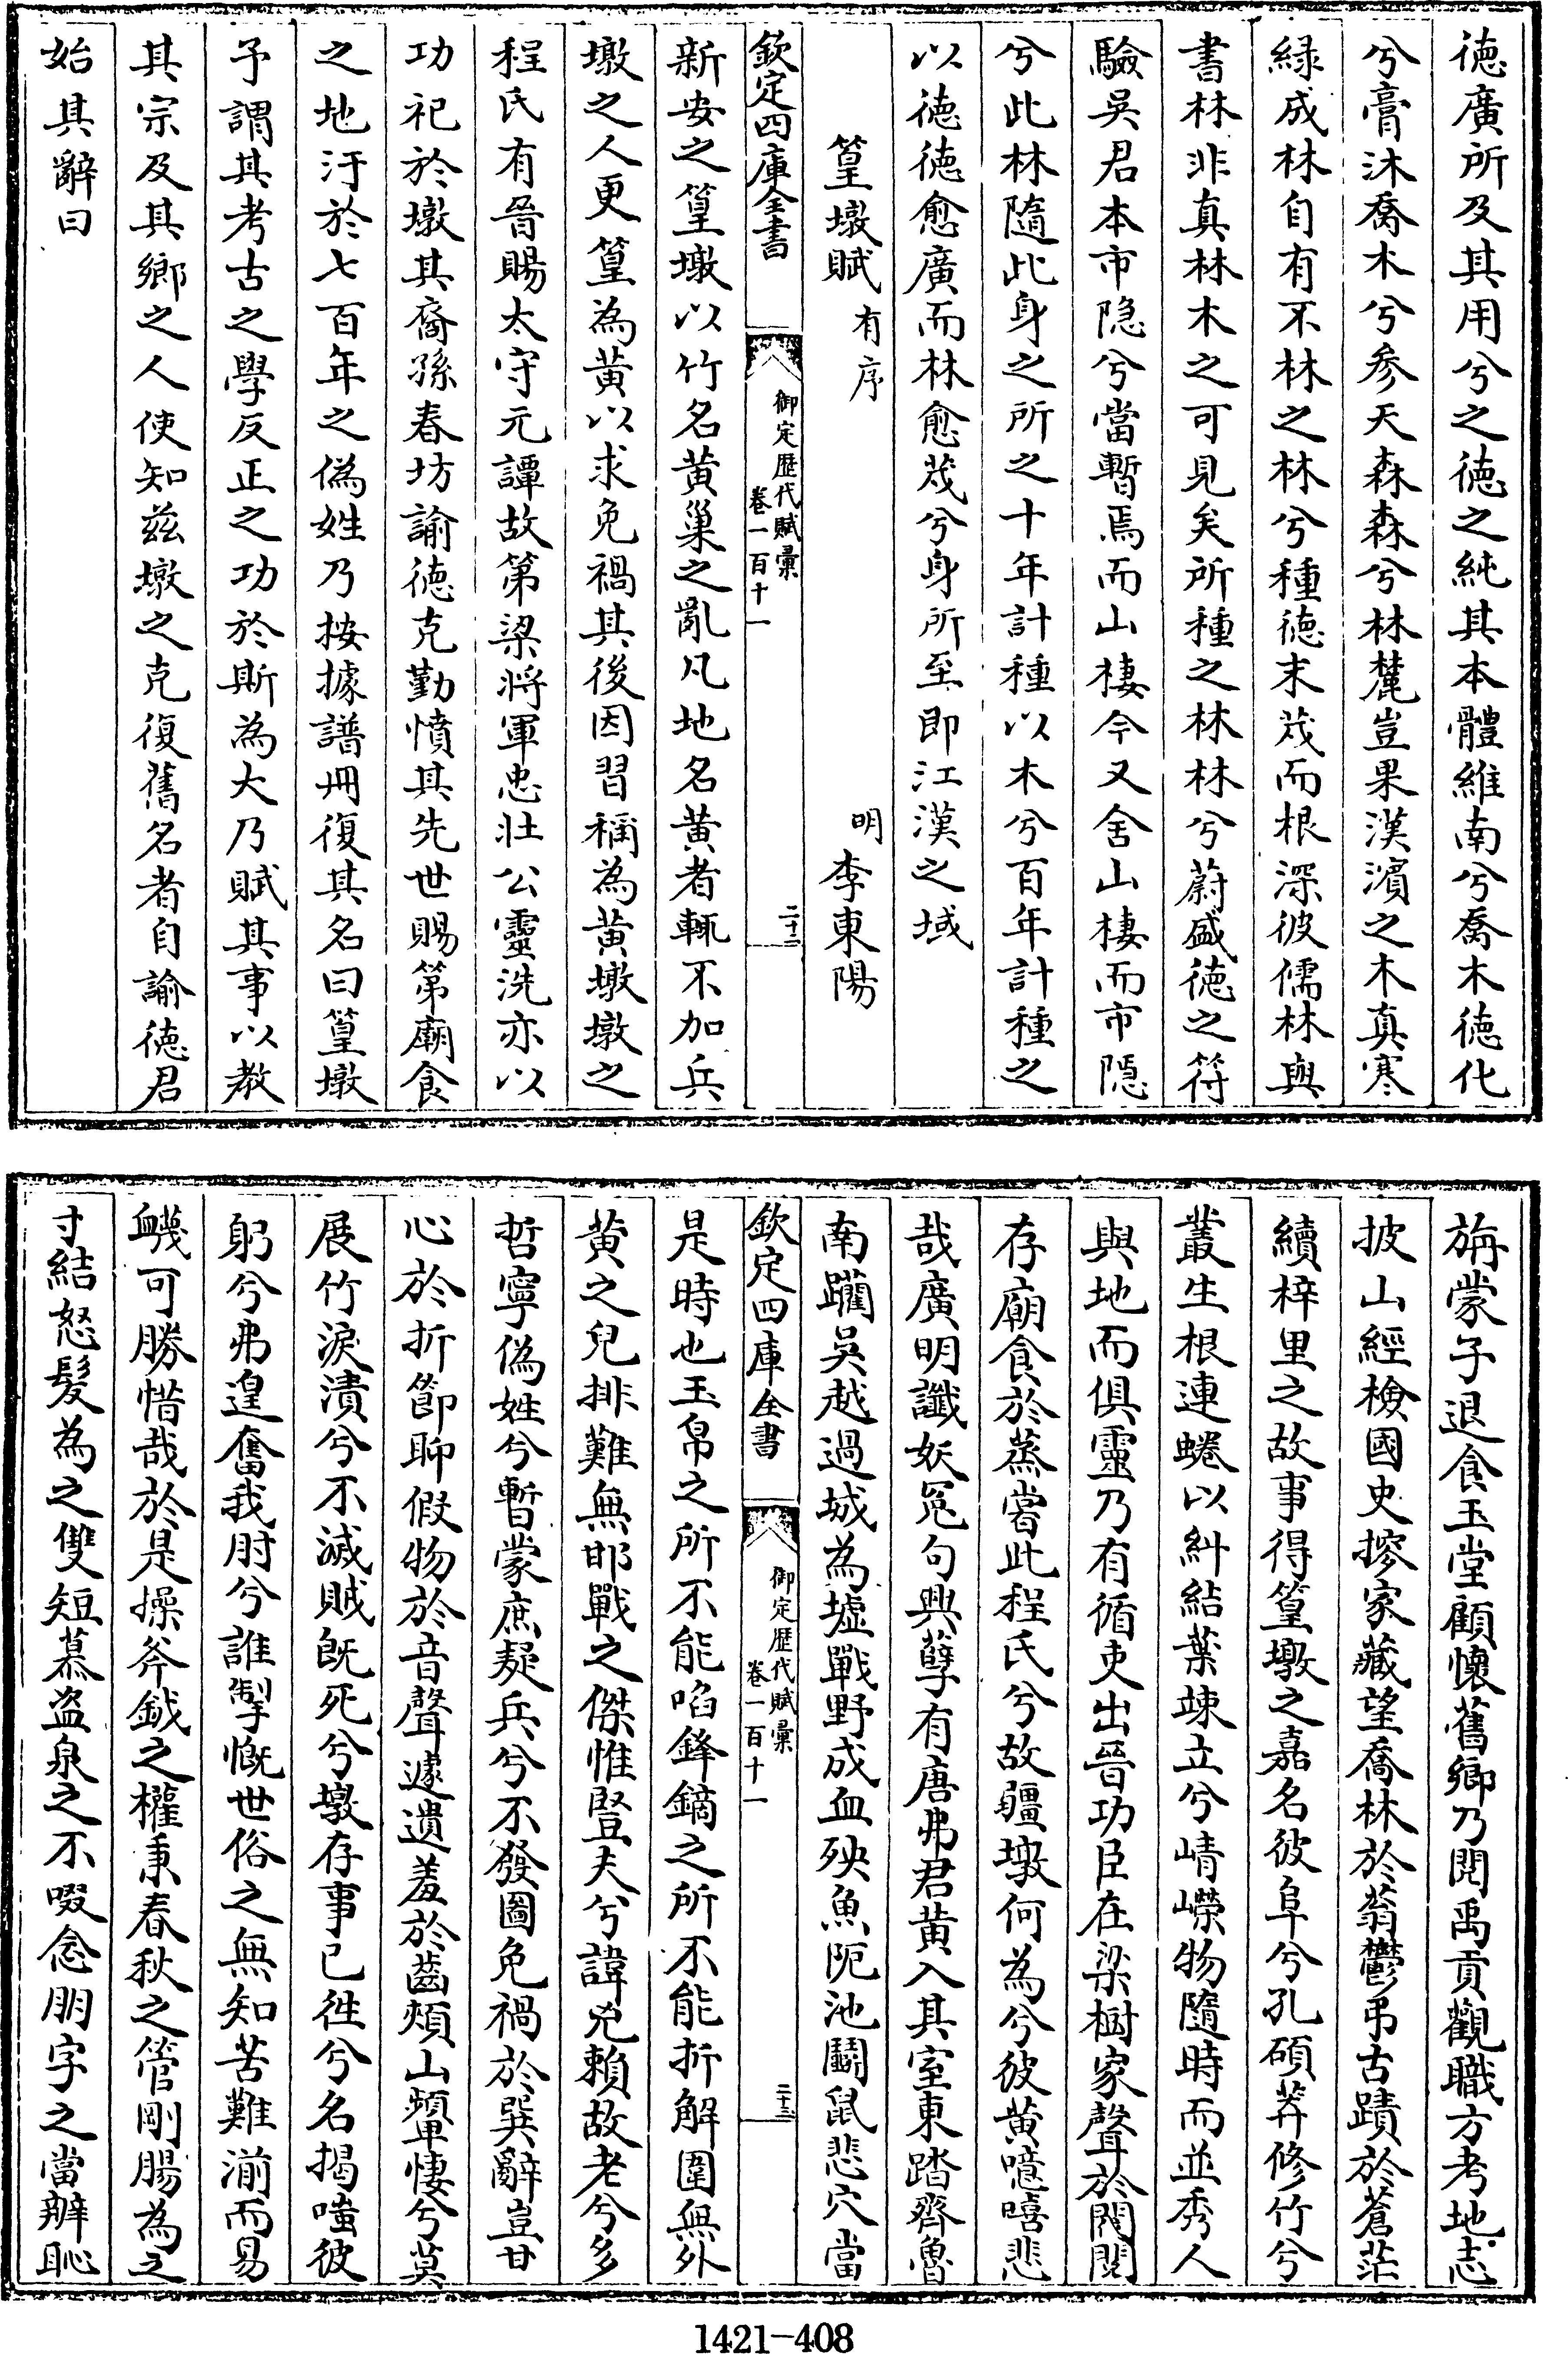 德廣所及其用兮之德之純其本體維南兮喬木德化
兮膏沐喬木兮參天森森兮林麓豈果漢濱之木真寒
緑成林自有不林之林兮種德末茂而根深彼儒林與
書林非真林木之可見矣所種之林林兮蔚盛德之符
驗吳君本市隐兮當暫焉而山棲今又舍山棲而市隱
兮此林隨此身之所之十年計種以木兮百年計種之
以德德愈廣而林愈茂兮身所至即江漢之域
篁墩賦有序 明李東陽
欽定四庫全書 御定歷代賦彙 卷一百十一 二十二
新安之篁墩以竹名黄巢之亂凡地名黄者輒不加兵
墩之人更篁為黄以求免禍其後因習稱為黄墩墩之
程氏有晉賜太守元譚故第梁将軍忠壮公靈洗亦以
功祀於墩其裔孫春坊諭德克勤憤其先世賜第廟食
之地汙於七百年之偽姓乃按據譜冊復其名曰篁墩
予謂其考古之學反正之功於斯為大乃賦其事以教
其宗及其鄉之人使知兹墩之克復舊名者自諭德君
始其辭曰
旃蒙子退食玉堂顧懷舊鄉乃閱禹貢觀職方考地志
披山經檢國史摉家藏望喬林於蓊鬱弔古蹟於蒼茫
續梓里之故事得篁墩之嘉名彼阜兮孔碩莽修竹兮
叢生根連蜷以糾結葉竦立兮崝嶸物隨時而並秀人
與地而俱靈乃有循吏出晉功臣在梁樹家聲於閥閱
存廟食於蒸嘗此程氏兮故疆墩何為兮彼黄噫嘻悲
哉廣明讖妖冤句興孽有唐弗君黄入其室東踏齊魯
南躪吳越過城為墟戰野成血殃魚阨池鬭鼠悲穴當
欽定四庫全書 御定歷代賦彙 卷一百十一 二十三
是時也玉帛之所不能啗鋒鏑之所不能折解圍無外
黄之兒排難無邯戰之傑惟豎夫兮諱兇賴故老兮多
哲寧偽姓兮暫蒙庶疑兵兮不發圖免禍於巽辭豈甘
心於折節聊假物於音聲遽遺羞於齒頰山顰悽兮莫
展竹淚漬兮不滅賊旣死兮墩存事已徃兮名揭嗤彼
躬兮弗遑奮我肘兮誰掣慨世俗之無知苦難湔而易
衊可勝惜哉於是操斧鉞之權秉春秋之管剛腸為之
寸結怒髮為之雙短慕盗泉之不啜念朋字之當辦恥
1421-408